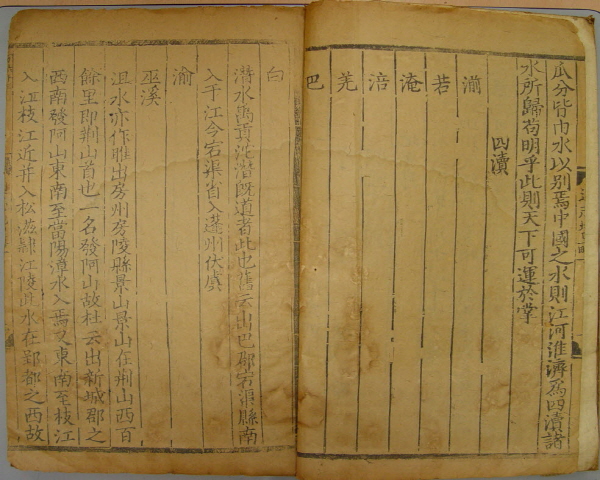 瓜分皆巾水以别焉中國之水則江河淮濟為四瀆諸
水所歸苟明乎此則天下可運於掌
四瀆
湔
若
淹
涪
羌
巴
白
潛水禹貢沱潛旣道者此也舊云出巴郡宕渠縣南
入于江今宕渠省入蓬州伏虞
渝
巫溪
沮水亦作雎出房州房陵縣景山景山在荆山西百
餘里即荆山首也一名發阿山故杜云出新城郡之
西南發阿山東南至當陽漳水入焉又東南至枝江
入江枝江近并入松滋隸江陵此水在郢都之西故